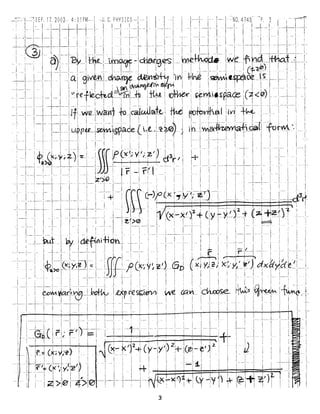 SEP. 17. 2002 4:31PM U C PHYSICS NO. 4146 P. 3
③
a) By the image-charges method we find that
a given charge density in the semispace is (z≥0)
"reflected" in to the other semispace (z<0)
if we want to calculate the potential in the
upper semispace (i.e. z≥0), in mathematical form:
ϕ(x,y,z) = ∭ ρ(x',y',z') / |r̄ - r̄'| d³r' +
z≥0 z'>0
+ ∭ (-)ρ(x',y',z') / √((x-x')²+(y-y')²+(z+z')²) d³r'
z'>0
but by definition
ϕ(x,y,z) = ∭ ρ(x',y',z') G_D (x,y,z, x',y',z') dx'dy'dz'
comparing both expressions we can choose this green func.
G_D(r̄, r̄') = 1 / √((x-x')²+(y-y')²+(z-z')²) +
r̄ = (x,y,z)
r̄' = (x',y',z')
+ -1 / √((x-x')²+(y-y')²+(z+z')²)
z>0 z'>0
3